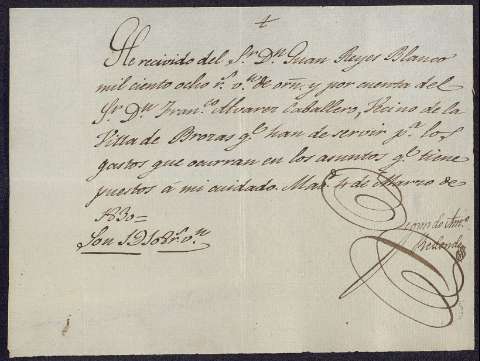 He recivido del Sr. Dn. Juan Reyes Blanco
mil ciento ocho rs. vn. de orn. y por cuenta del
Sr. Dn. Franco. Alvarez Caballero, Vecino de la
Villa de Brozas qe. han de servir pa. los
gastos que ocurran en los asuntos qe. tiene
puestos á mi cuidado. Mad. 4 de Marzo de
1830=
Son 19108 rs. vn.
Anto.
Redondo